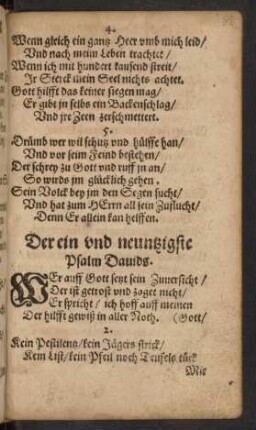 4.
Wenn gleich ein gantz Heer vmb mich leid/
Vnd nach meim Leben trachtet/
Wenn ich mit hundert tausend streit/
Ir Sterck mein Seel nichts achtet.
Gott hilfft das keiner siegen mag/
Er gibt jn selbs ein Backenschlag/
Vnd jre Zeen zerschmettert.
5.
Drümb wer wil schutz vnd hülffe han/
Vnd vor seim Feind bestehen/
Der schrey zu Gott vnd ruff jn an/
So wirds jm glücklich gehen.
Sein Volck bey jm den Segen sucht/
Vnd hat zum HErrn all sein Zuflucht/
Denn Er allein kan helffen.
Der ein vnd neuntzigste
Psalm Dauids.
WEr auff Gott setzt sein Zuuersicht/
Der ist getrost vnd zaget nicht/
Er spricht/ ich hoff auff meinen
Der hilfft gewiß in aller Noth. (Gott/
2.
Kein Pestilentz/ kein Jägers strick/
Kein List/ kein Pfeil noch Teufels tück
Mit